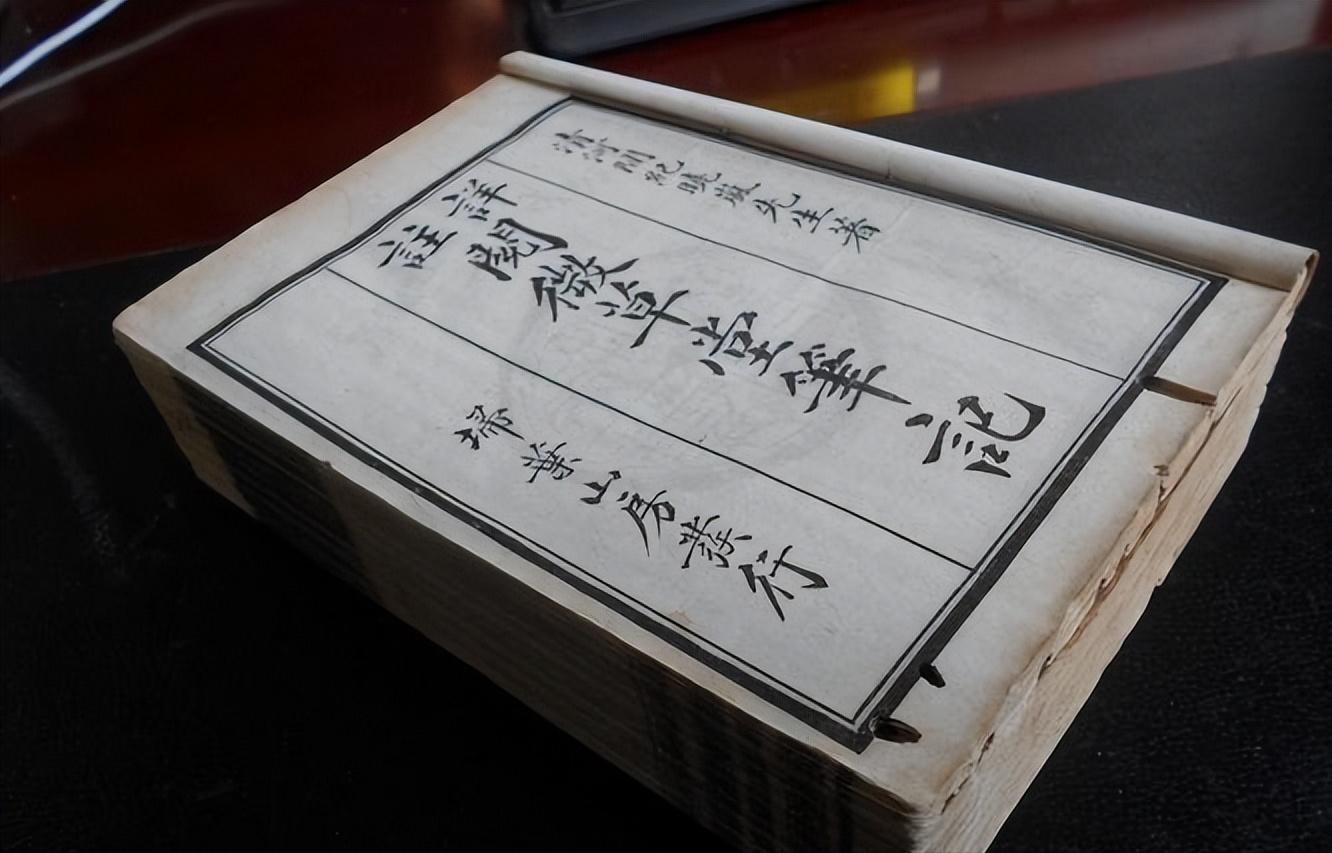 清河間紀曉嵐先生著
詳註閱微草堂筆記
掃葉山房發行